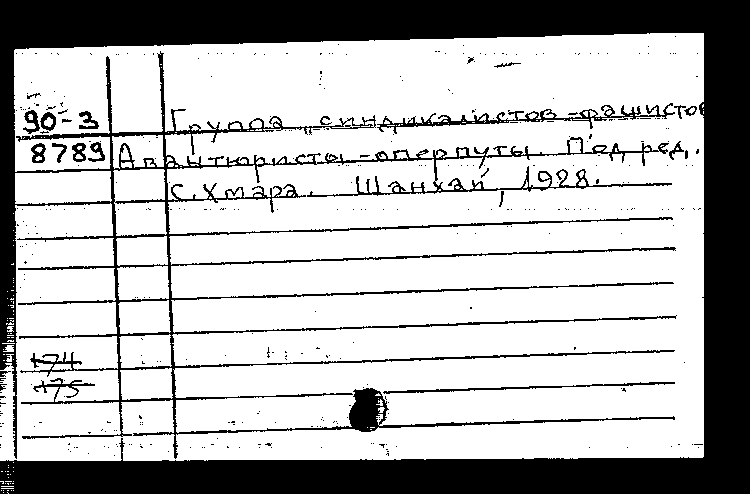 90-3 Группа „синдикалистов-фашистов
8789 Авантюристы-оперпуты. Под ред.
С.Хмара. Шанхай, 1928.
+74
+75